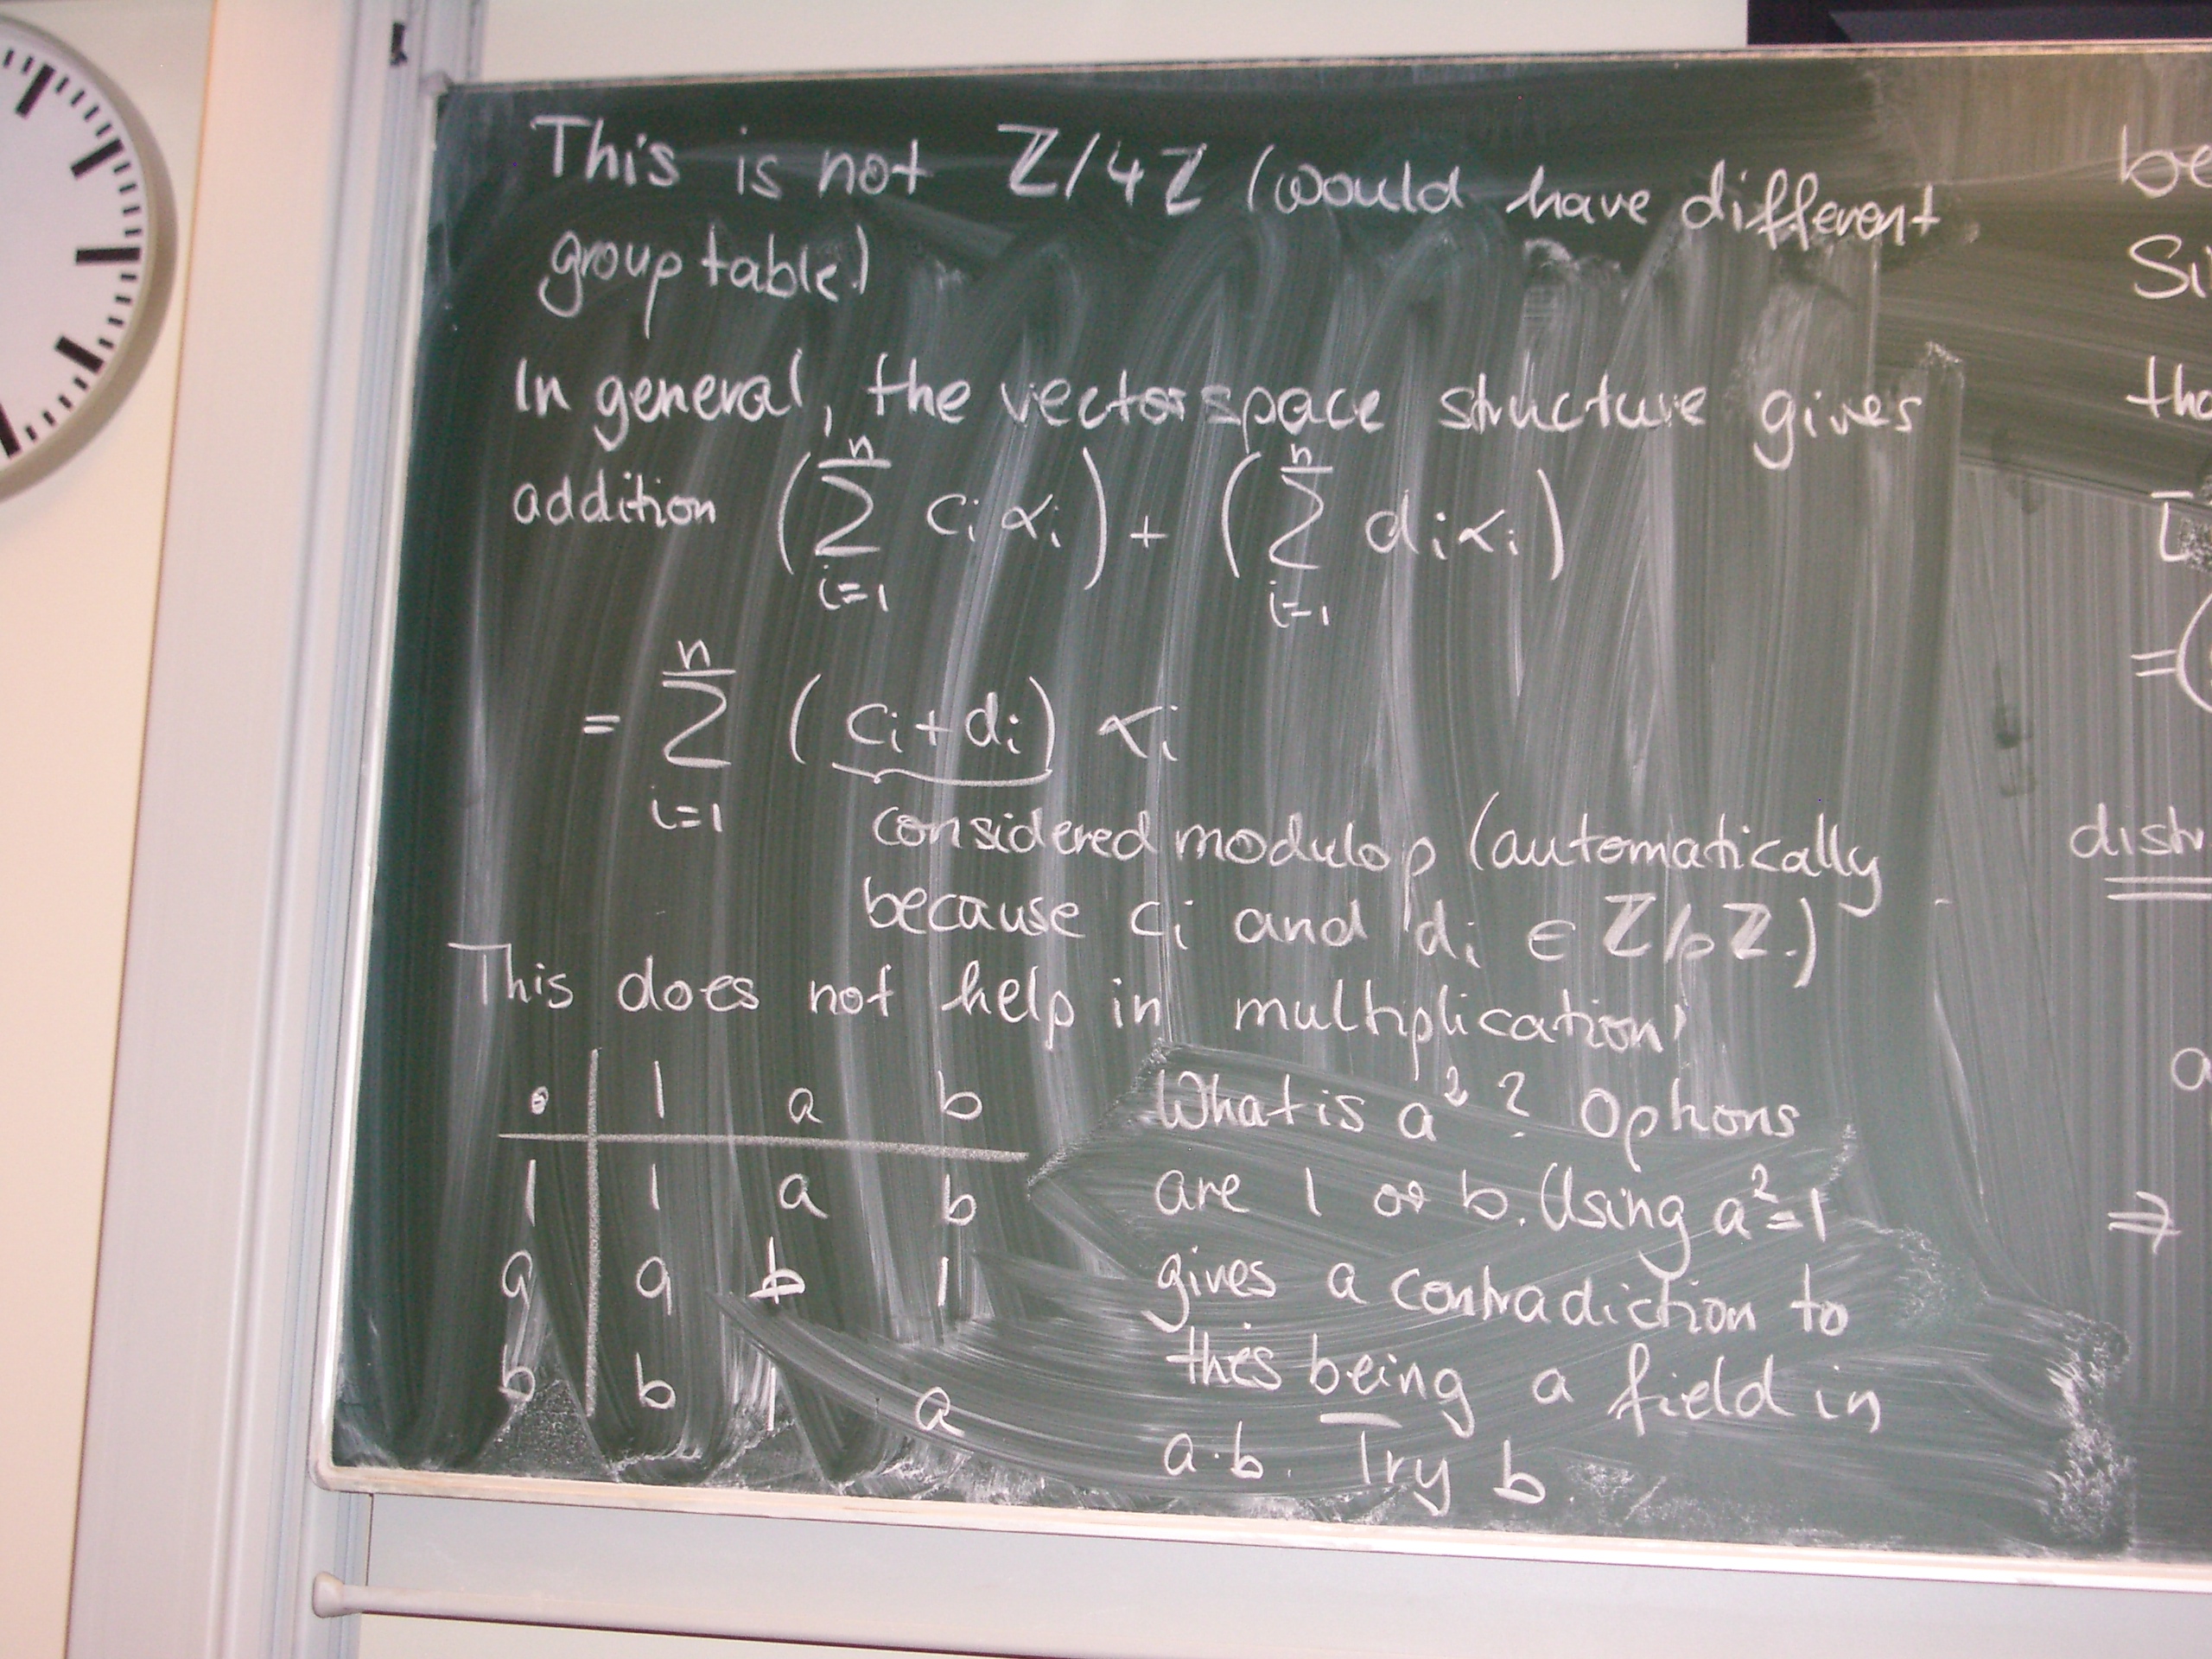 This is not ℤ/4ℤ (would have different
group table.)
In general, the vectorspace structure gives
addition (∑_{i=1}^{n} c_i α_i) + (∑_{i=1}^{n} d_i α_i)
= ∑_{i=1}^{n} (c_i + d_i) α_i
considered modulo p (automatically
because c_i and d_i ∈ ℤ/pℤ.)
This does not help in multiplication,
• | 1 a b
1 | 1 a b
a | a b 1
b | b 1 a
What is a² ? Options
are 1 or b. Using a²=1
gives a contradiction to
thes being a field in
a·b. Try b.
be
Si
tha
=(
distr
a
⇒